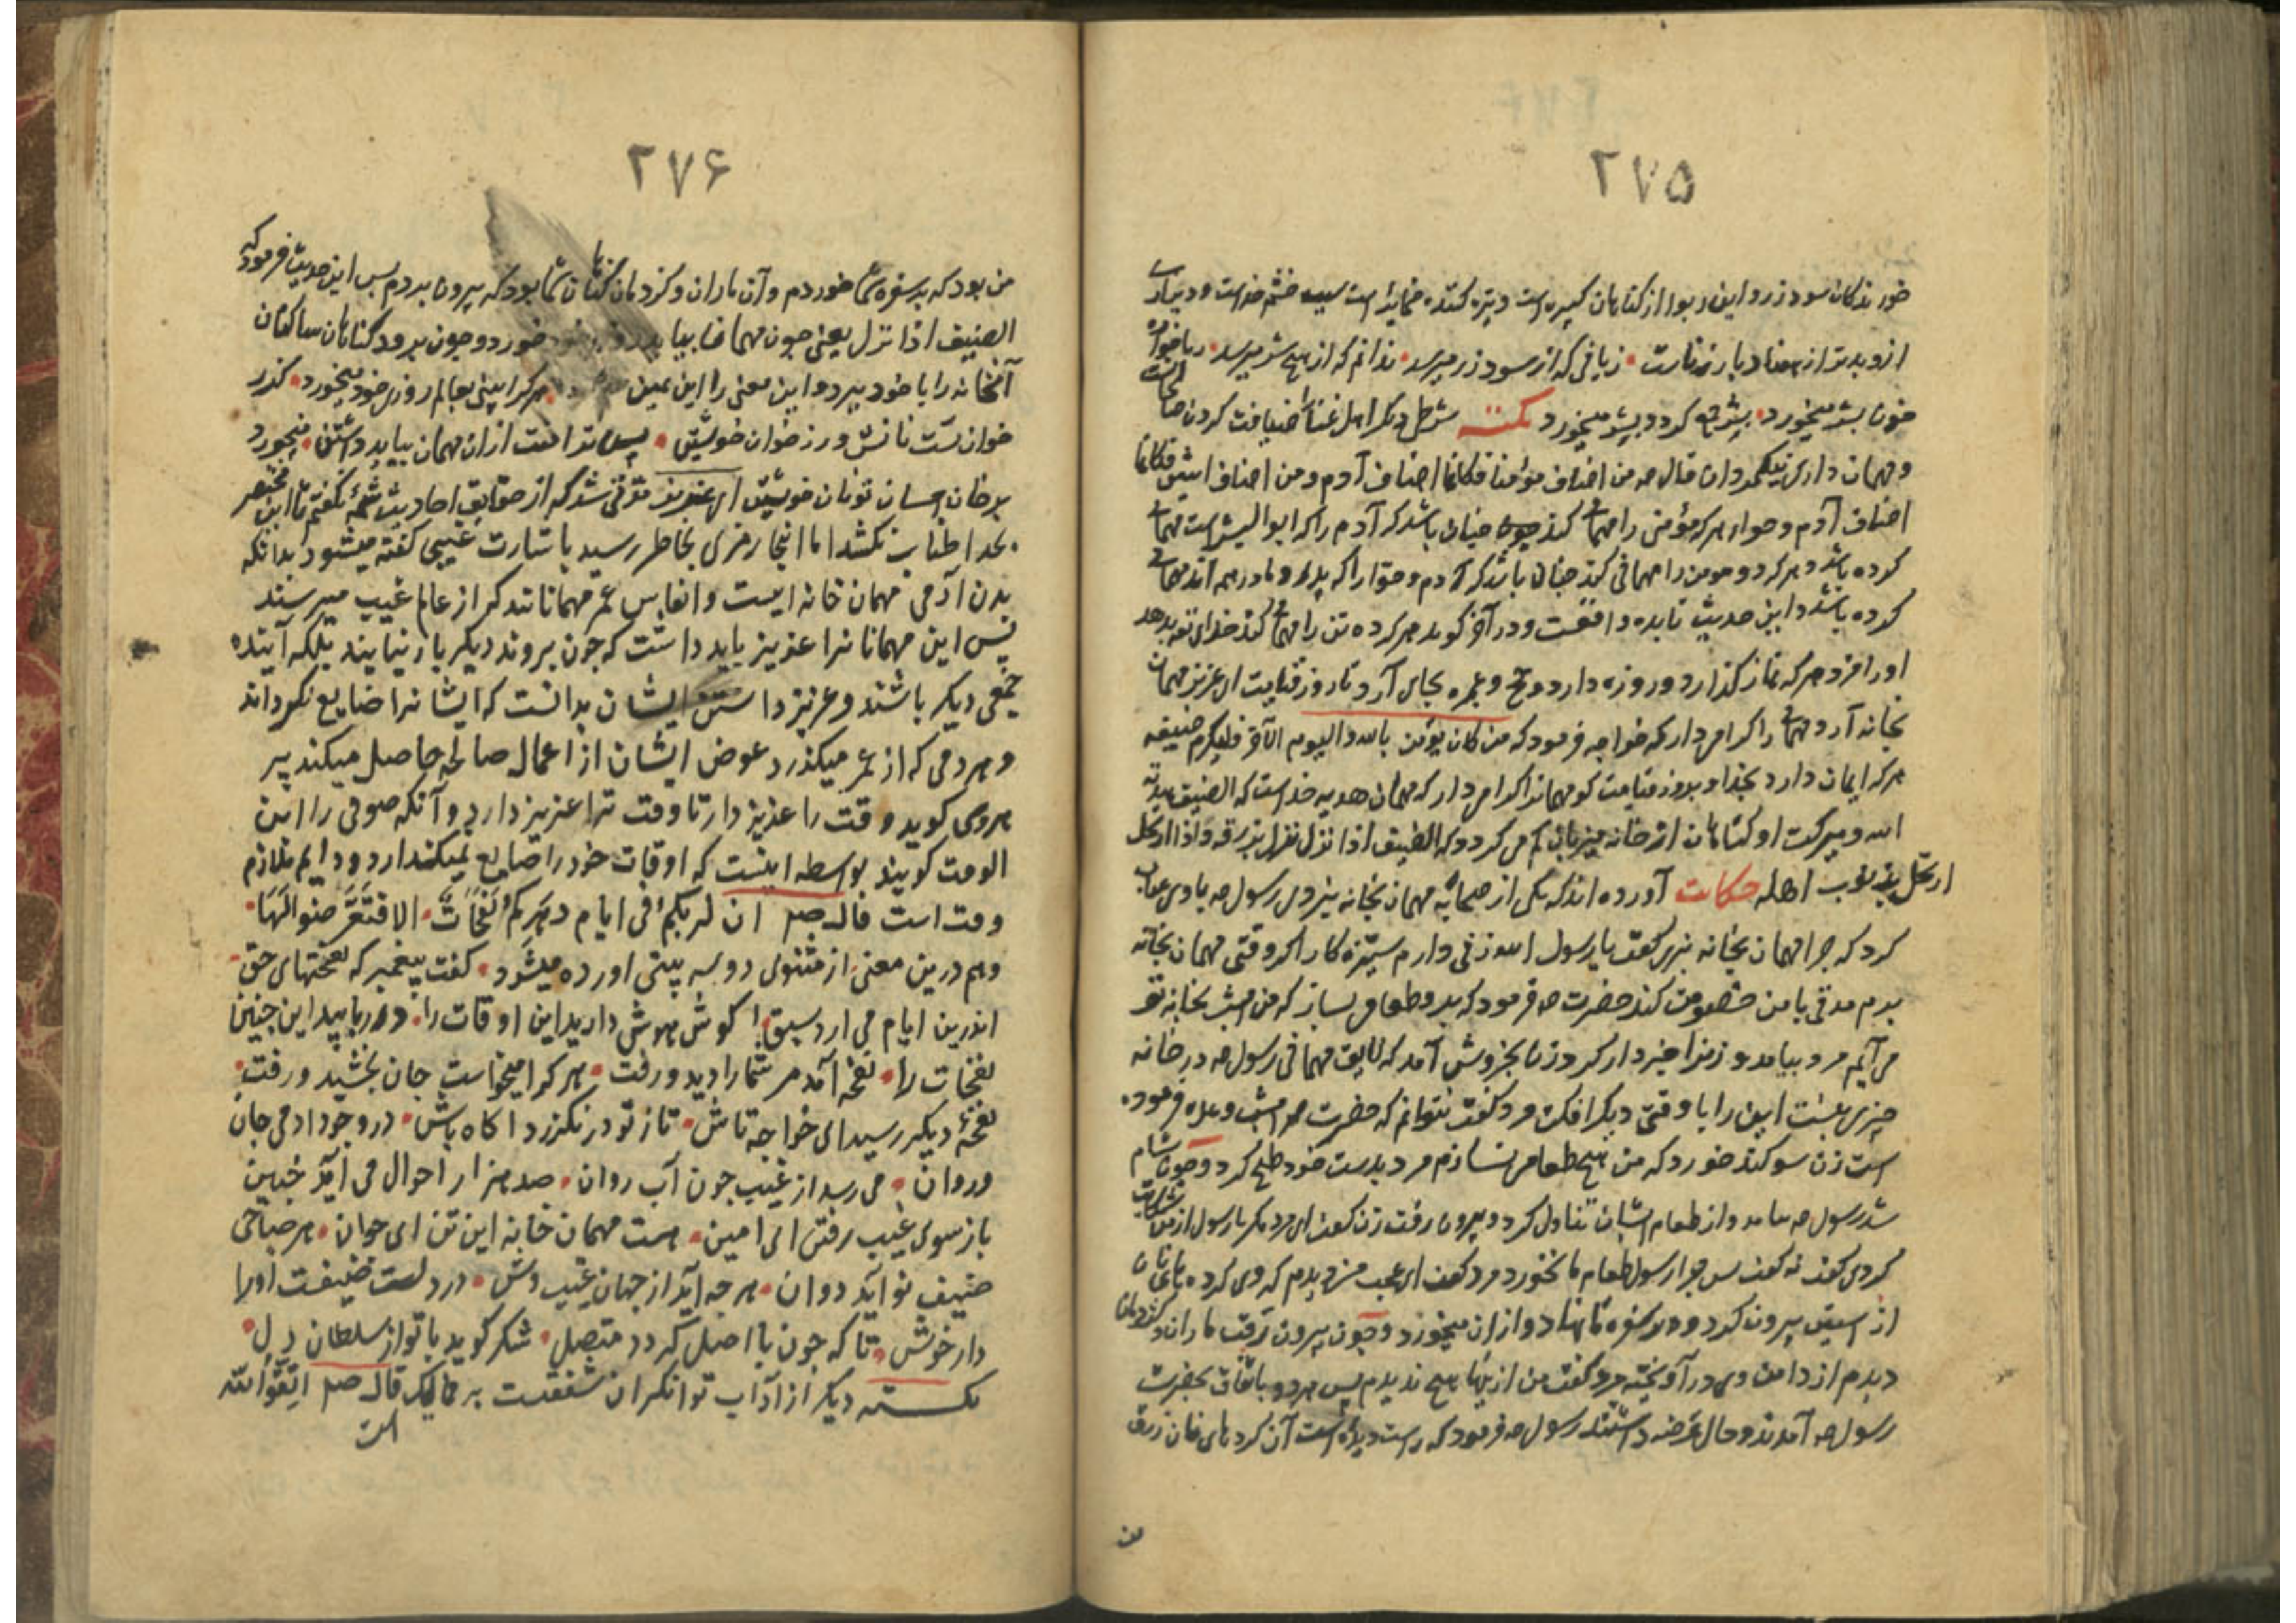 ۲۷۵
خورندکان سود زر و این ربوا از کناهان کبیره است و تیزه کننده است سبب خشم خداست و دیناری
ازو بدتر از هفتاد بار زناست زیانی که از سود زر میرسد ندانم که از هیچ شر میرسد رباخواره
خون بشر میخورد بشر چه کرد و بشر میخورد نکته شرط دیکر اهل غنا را ضیافت کردن صالحانست
و مهمان داری نیکمردان قال صه من اضاف مؤمنا فکانما اضاف آدم و من اضاف اثنین فکانما
اضاف آدم و حواء هر که مؤمنی را مهمانی کند چنان باشد که آدم را که ابوالبشر است مهمانی
کرده باشد و هر که دو مومن را مهمانی کند چنان باشد که آدم و حوا را که پدر و مادر همه اند مهمانی
کرده باشد و این حدیث تا بده واقعست و در آخر کوید هر که ده تن را مهمانی کند خدای تعه بدهد
او را مزد هر که نماز کذارد و روزه دارد و حج و عمره بجای آرد تا روز قیامت ای عزیز مهمان
بخانه آر و مهمان را اکرام دار که خواجه فرمود که من کان یؤمن بالله والیوم الآخر فلیکرم ضیفه
هر که ایمان دارد بخدا و بروز قیامت کو مهمانرا اکرام دار که مهمان هدیه خداست که الضیف هدیة
الله و ببرکت او کناهان از خانه میزبان کم می کردد که الضیف اذا نزل نزل برزقه و اذا ارتحل
ارتحل بذنوب اهله حکایت آورده اند که یکی از صحابه مهمان بخانه نبردی رسول صه با وی عتاب
کرد که چرا مهمان بخانه نبری کفت یا رسول الله زنی دارم ستیزه کار اکر وقتی مهمان بخانه
برم مدتی با من خصومت کند حضرت صه فرمود که برو طعامی بساز که من امشب بخانه تو
می آیم مرد بیامد و زنرا خبردار کرد زن بخروش آمد که لایق مهمانی رسول صه در خانه
چیزی نیست این را با وقتی دیکر افکن مرد کفت نتوانم که حضرت صه امشب وعده فرموده
است زن سوکند خورد که من هیچ طعامی نسازم مرد بدست خود طبخ کرد و چون شام
شد رسول صه بیامد و از طعام ایشان تناول کرد و بیرون رفت زن کفت ای مرد مکر با رسول از من شکایت
کردی کفت نه کفت پس چرا رسول طعام ما نخورد مرد کفت ای عجب من دیدم که وی کرده‌های نان
از آستین بیرون کرد و بر سفره ما نهاد و از ان میخورد و چون بیرون رفت ماران و کژدمان
دیدم از دامن وی در آویخته مرد کفت من از اینها هیچ ندیدم پس هر دو باتفاق بحضرت
رسول صه آمدند و حال عرضه داشتند رسول صه فرمود که راست دیده است آن کرده‌های نان رزق
من
۲۷۶
من بود که بر سفره شما خوردم و آن ماران و کژدمان کناهان شما بود که بیرون بردم پس این حدیث فرمود که
الضیف اذا نزل یعنی چون مهمان بیاید خورد و چون برود کناهان ساکنان
آنخانه را با خود ببرد و این معنی را ابن یمین هر کرا بینی بعالم روزی خود میخورد کذر
خوان تست نانش ور ز خوان خویشتن پس ترا منت از ان مهمان بباید داشتن میخورد
بر خان احسان تو نان خویشتن ای عزیز متوقی شد که از حقایق احادیث شمه کفتم تا این مختصر
بحد اطناب نکشد اما اینجا رمزی بخاطر رسید باشارت غیبی کفته میشود بدانکه
بدن آدمی مهمان خانه ایست و انفاس عمر مهمانانند که از عالم غیب میرسند
پس این مهمانانرا عزیز باید داشت که چون بروند دیکر باز نیایند بلکه آینده
جمعی دیکر باشند و عزیز داشتن ایشان بدانست که ایشانرا ضایع نکرداند
و هر دمی که از عمر میکذرد عوض ایشان از اعمال صالحه حاصل میکند پیر
هروی کوید وقت را عزیز دار تا وقت ترا عزیز دارد و آنکه صوفی را ابن
الوقت کویند بواسطه اینست که اوقات خود را ضایع نمیکذارد و دایم ملازم
وقت است قال صلم ان لربکم فی ایام دهرکم نفحات الا فتعرضوا لها
و هم درین معنی از مثنوی دو سه بیتی آورده میشود کفت پیغمبر که نفحتهای حق
اندرین ایام می ارد سبق کوش هوش دارید این اوقات را در ربایید این چنین
نفحات را نفحه آمد مر شما را دید و رفت هر کرا میخواست جان بخشید و رفت
نفحهٔ دیکر رسید ای خواجه تاش تا ز تو در نکزرد اکاه باش در وجود ادمی جان
و روان می رسد از غیب چون آب روان صد هزار احوال می آید چنین
باز سوی غیب رفتن ای امین هست مهمان خانه این تن ای جوان هر صباحی
ضیف نو آید دوان هر چه آید از جهان غیب وش در دلت ضیفست او را
دار خوش تا که چون با اصل کردد متصل شکر کوید با تو از سلطان دل
نکته دیکر از آداب توانکران شفقت بر ممالیک قال صلم اتقوا الله